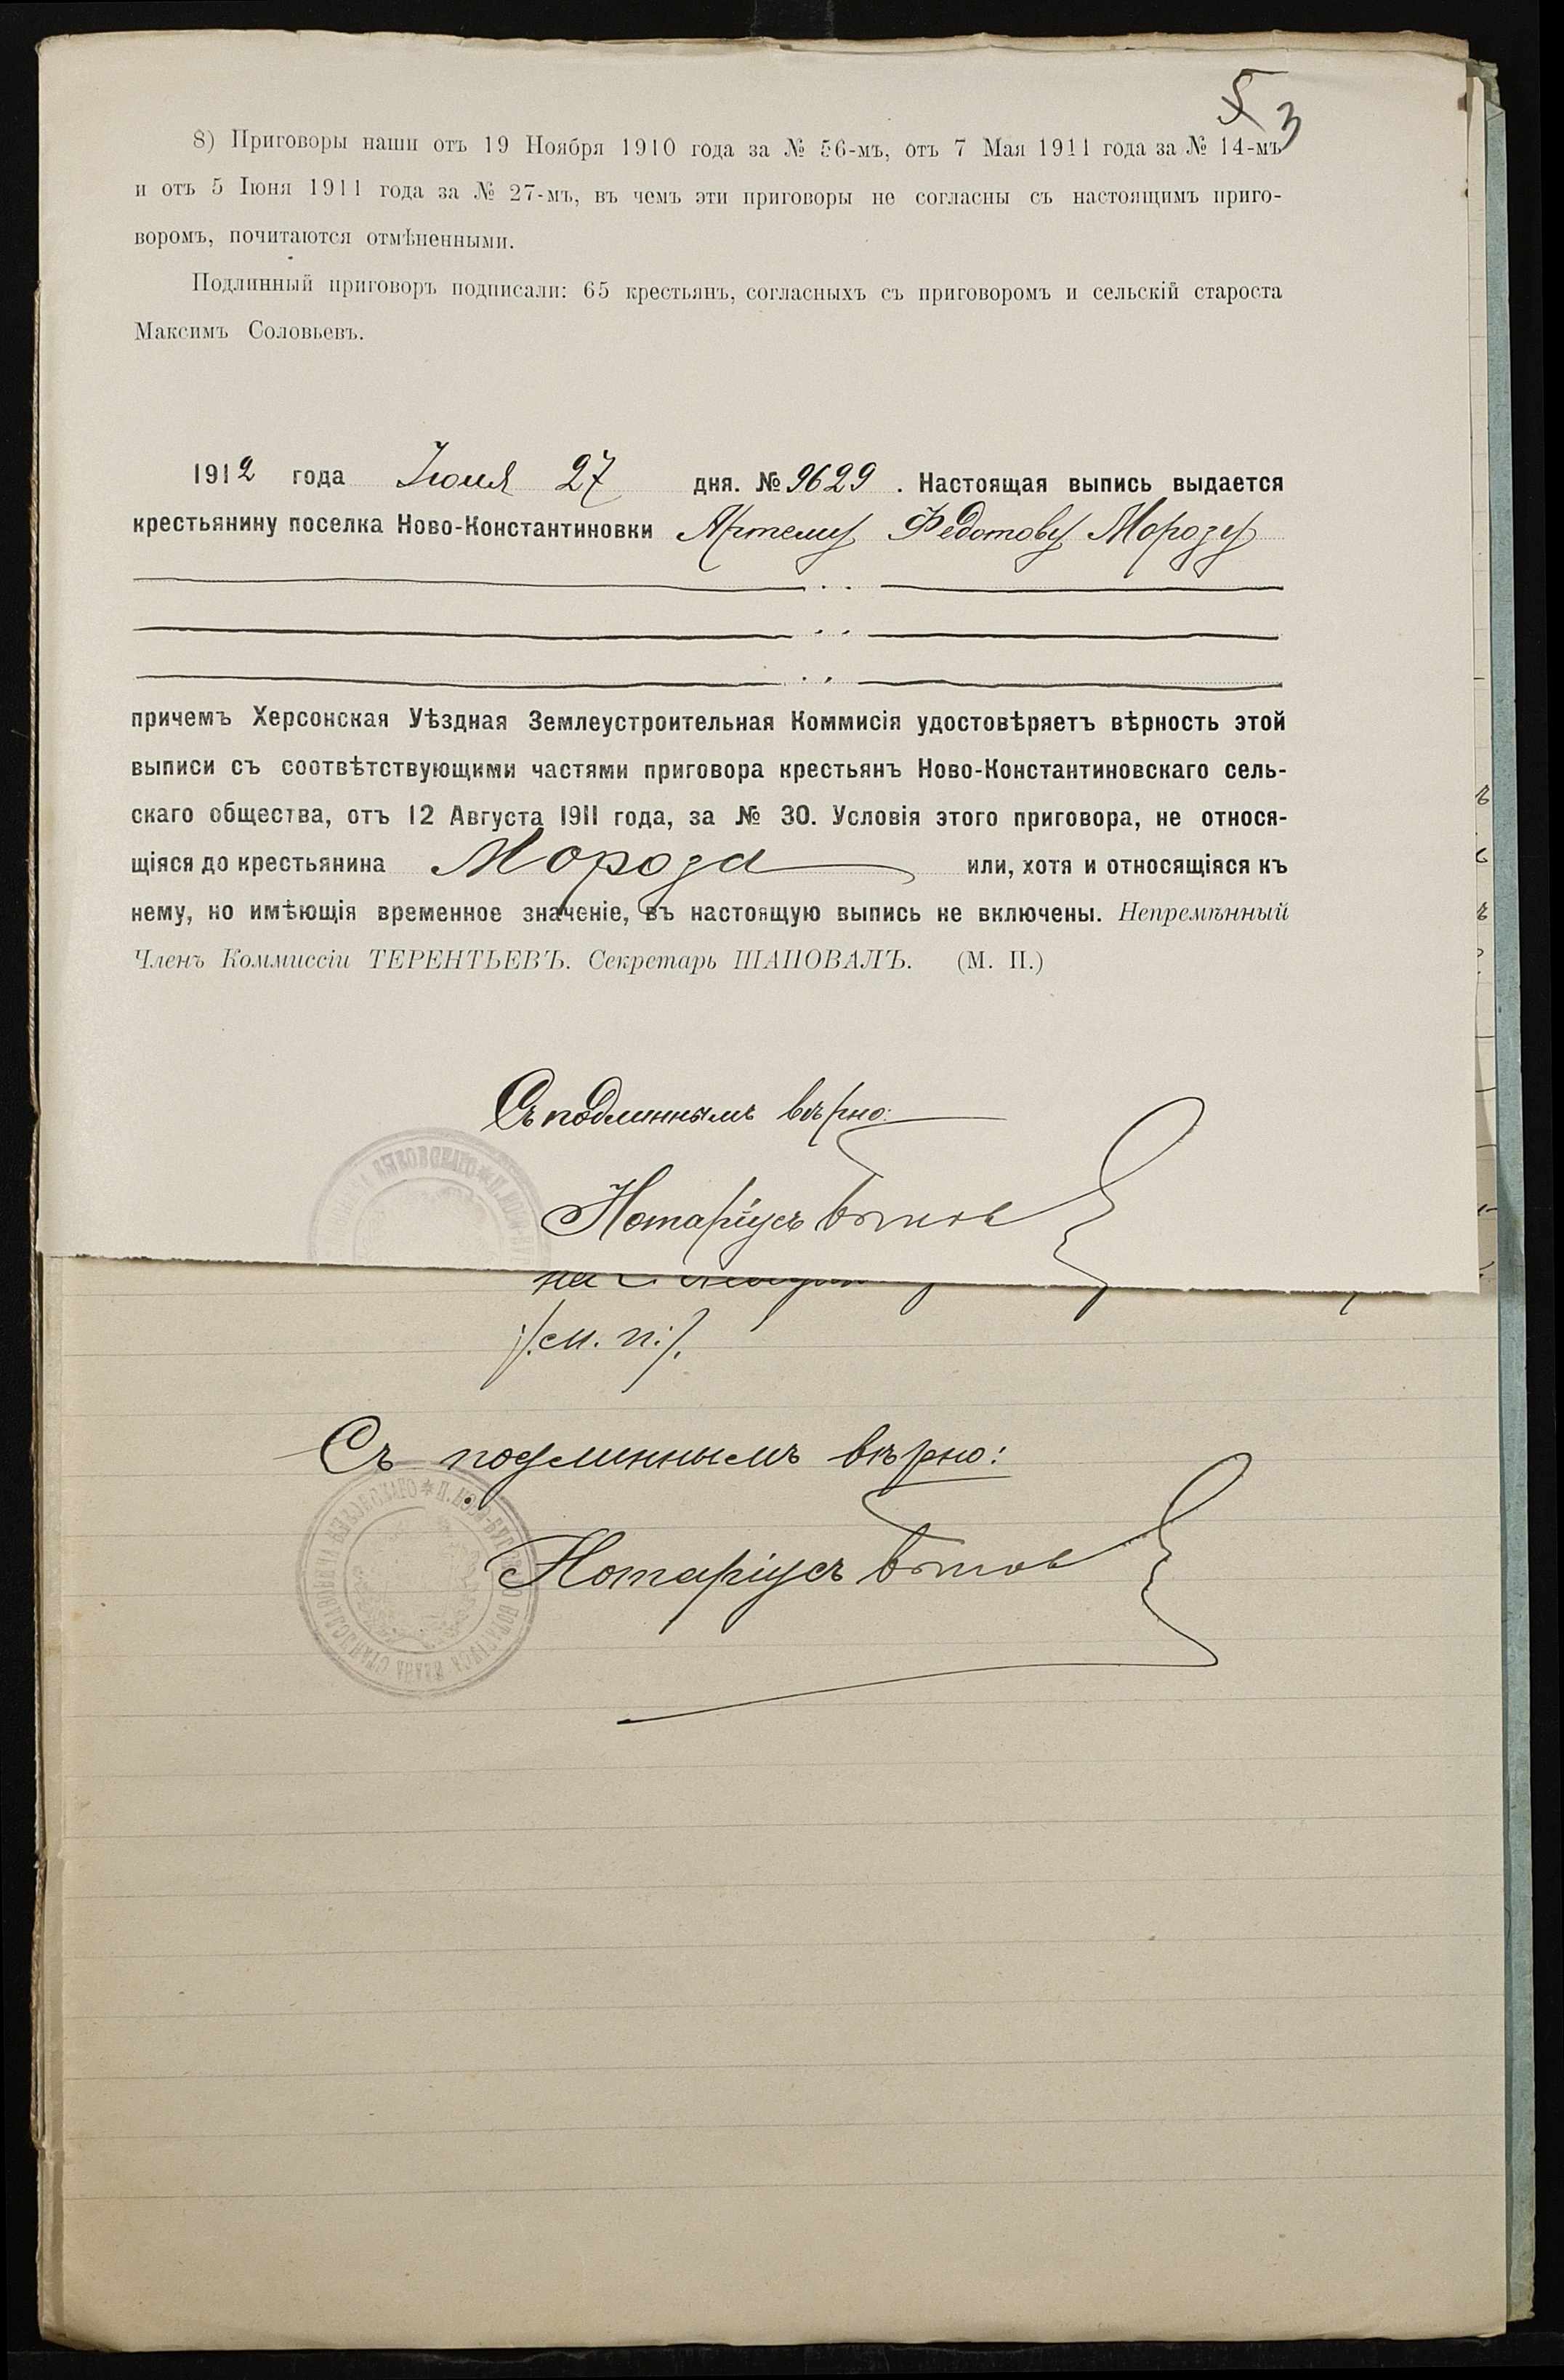 5 3
8) Приговоры наши отъ 19 Ноября 1910 года за № 56-мъ, отъ 7 Мая 1911 года за № 14-мъ
и отъ 5 Іюня 1911 года за № 27-мъ, въ чемъ эти приговоры не согласны съ настоящимъ приго-
воромъ, почитаются отмѣненными.
Подлинный приговоръ подписали: 65 крестьянъ, согласныхъ съ приговоромъ и сельскій староста
Максимъ Соловьевъ.
1912 года Іюля 27 дня. № 9629. Настоящая выпись выдается
крестьянину поселка Ново-Константиновки Артему Федотову Морозу
причемъ Херсонская Уѣздная Землеустроительная Коммисія удостовѣряетъ вѣрность этой
выписи съ соотвѣтствующими частями приговора крестьянъ Ново-Константиновскаго сель-
скаго общества, отъ 12 Августа 1911 года, за № 30. Условія этого приговора, не относя-
щіяся до крестьянина Мороза или, хотя и относящіяся къ
нему, но имѣющія временное значеніе, въ настоящую выпись не включены. Непремѣнный
Членъ Коммиссіи ТЕРЕНТЬЕВЪ. Секретарь ШАПОВАЛЪ. (М. П.)
Съ подлиннымъ вѣрно:
Нотаріусъ
/.м. п:/.
Съ подлиннымъ вѣрно:
Нотаріусъ